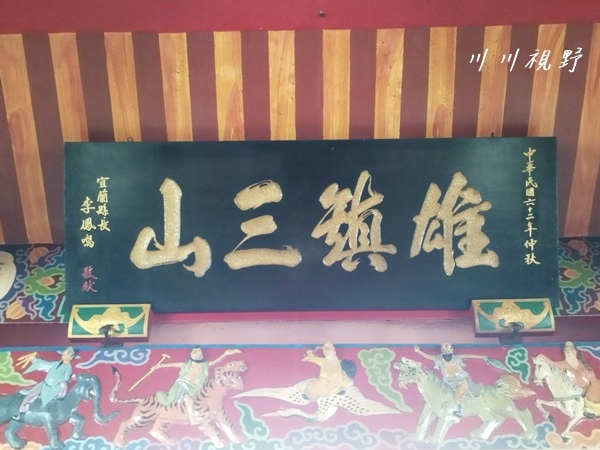 川川視野
中華民國六二年仲秋
雄鎮三山
宜蘭縣長
李鳳鳴
敬獻